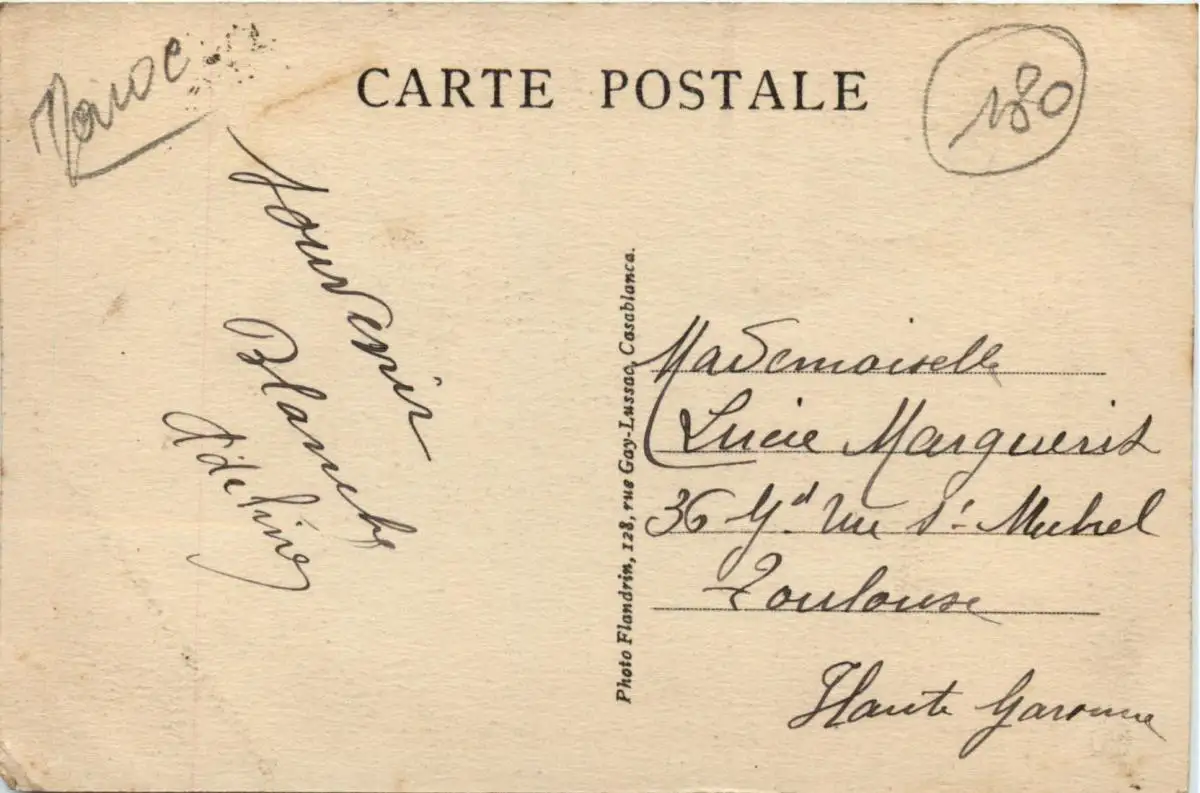 Maroc
CARTE POSTALE
180
Souvenir
Blanche
Photo Flandrin, 128, rue Gay-Lussac, Casablanca.
Mademoiselle
Lucie Marguerit
36 Gd rue St Michel
Toulouse
Haute Garonne